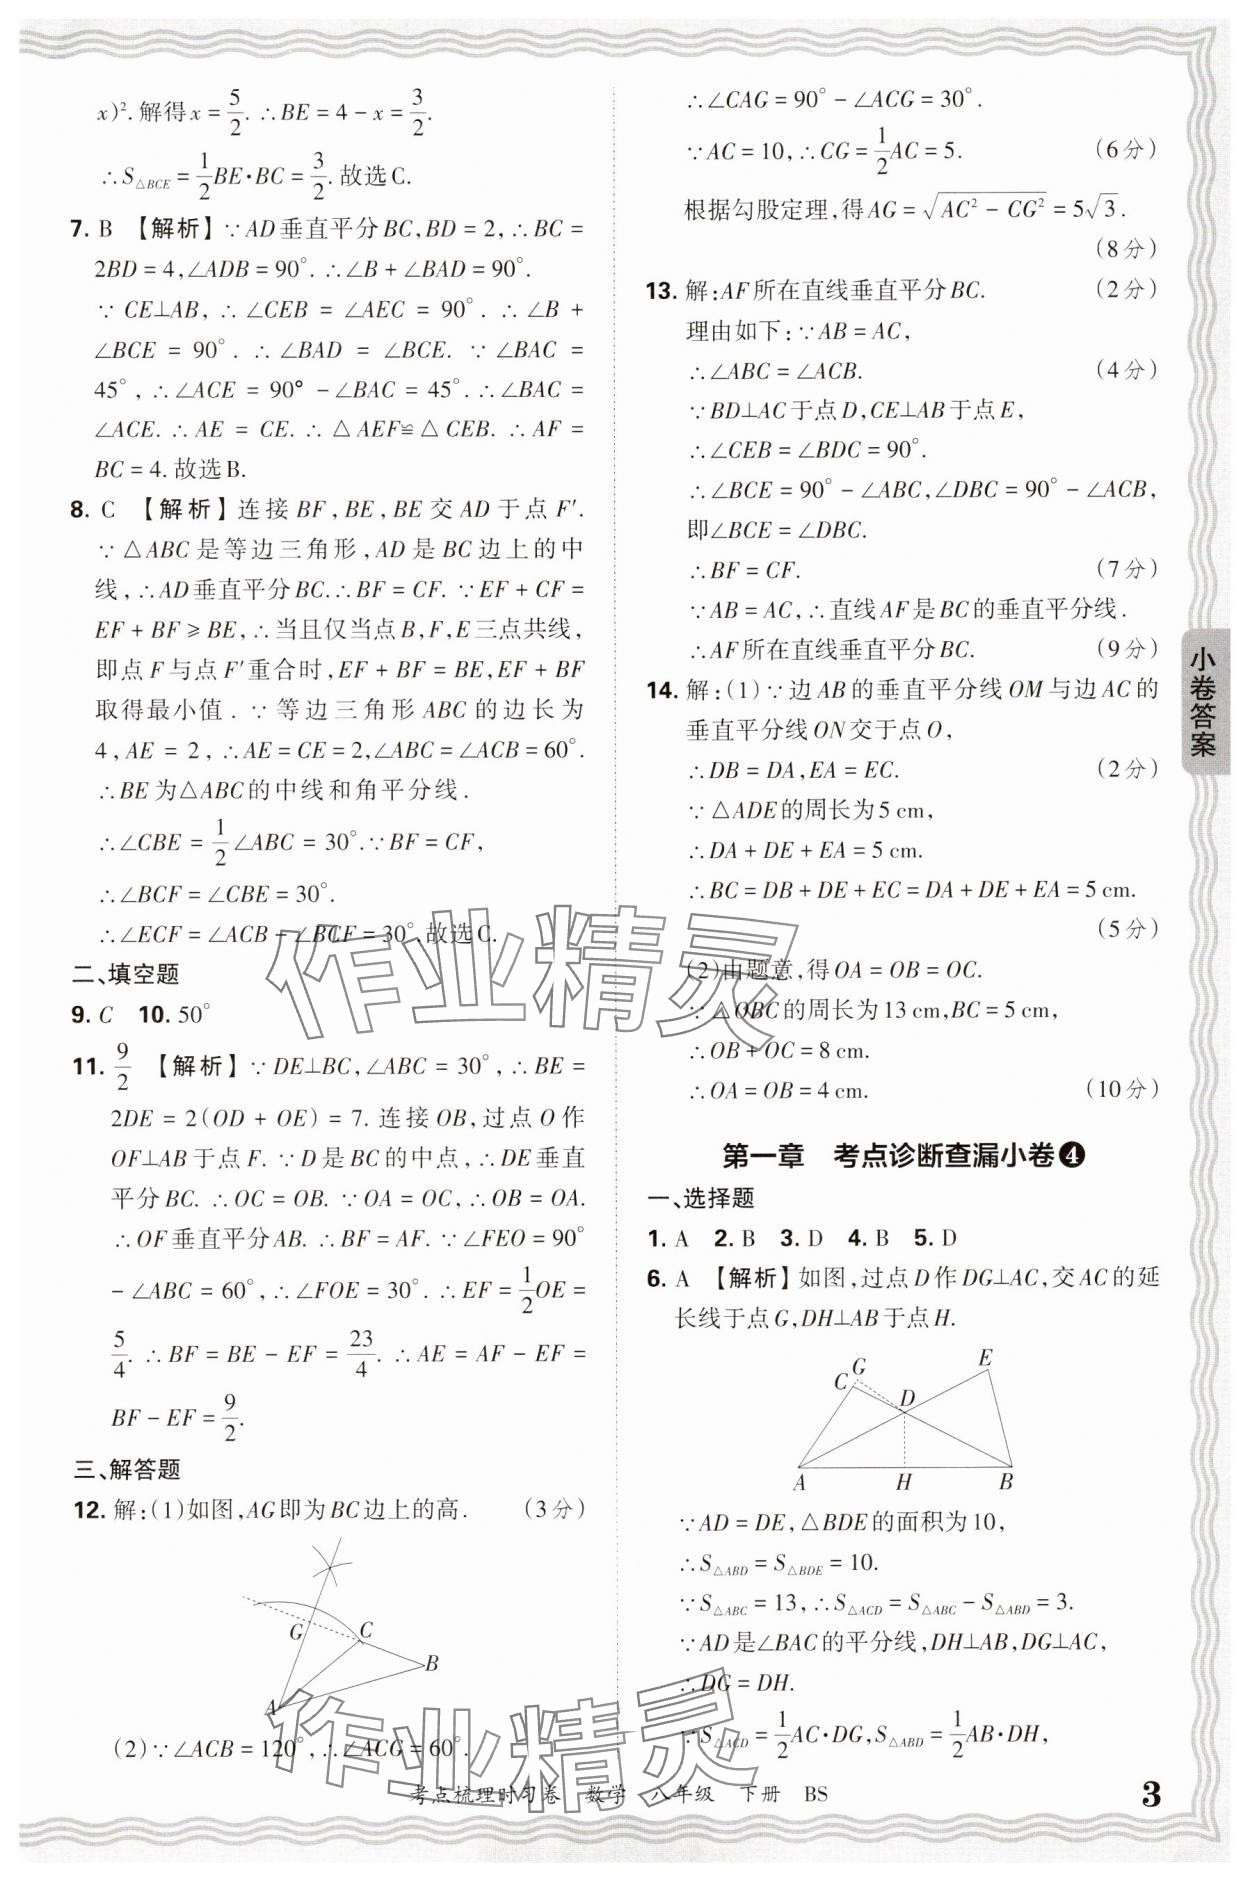 x)². 解得 x = 5/2. ∴BE = 4 - x = 3/2.
∴S△BCE = 1/2 BE·BC = 3/2. 故选C.
7. B 【解析】∵AD垂直平分BC,BD = 2,∴BC =
2BD = 4,∠ADB = 90°. ∴∠B + ∠BAD = 90°.
∵ CE⊥AB, ∴∠CEB = ∠AEC = 90°. ∴∠B +
∠BCE = 90°. ∴∠BAD = ∠BCE. ∵∠BAC =
45°, ∴∠ACE = 90° - ∠BAC = 45°. ∴∠BAC =
∠ACE. ∴AE = CE. ∴△AEF≌△CEB. ∴AF =
BC = 4. 故选B.
8. C 【解析】连接BF,BE,BE交AD于点F′.
∵△ABC是等边三角形,AD是BC边上的中
线,∴AD垂直平分BC. ∴BF = CF. ∵EF + CF =
EF + BF ≥ BE,∴当且仅当点B,F,E三点共线,
即点F与点F′重合时,EF + BF = BE,EF + BF
取得最小值. ∵等边三角形ABC的边长为
4,AE = 2, ∴AE = CE = 2,∠ABC = ∠ACB = 60°.
∴BE为△ABC的中线和角平分线.
∴∠CBE = 1/2 ∠ABC = 30°. ∵BF = CF,
∴∠BCF = ∠CBE = 30°.
∴∠ECF = ∠ACB - ∠BCF = 30°. 故选C.
二、填空题
9. C 10. 50°
11. 9/2 【解析】∵DE⊥BC,∠ABC = 30°,∴BE =
2DE = 2(OD + OE) = 7. 连接OB,过点O作
OF⊥AB于点F. ∵D是BC的中点,∴DE垂直
平分BC. ∴OC = OB. ∵OA = OC,∴OB = OA.
∴OF垂直平分AB. ∴BF = AF. ∵∠FEO = 90°
- ∠ABC = 60°,∴∠FOE = 30°. ∴EF = 1/2 OE =
5/4. ∴BF = BE - EF = 23/4. ∴AE = AF - EF =
BF - EF = 9/2.
三、解答题
12. 解:(1)如图,AG即为BC边上的高. (3分)
G C
B
A
(2)∵∠ACB = 120°,∴∠ACG = 60°.
∴∠CAG = 90° - ∠ACG = 30°.
∵AC = 10,∴CG = 1/2 AC = 5. (6分)
根据勾股定理,得AG = √(AC² - CG²) = 5√3.
(8分)
13. 解:AF所在直线垂直平分BC. (2分)
理由如下:∵AB = AC,
∴∠ABC = ∠ACB. (4分)
∵BD⊥AC于点D,CE⊥AB于点E,
∴∠CEB = ∠BDC = 90°.
∴∠BCE = 90° - ∠ABC,∠DBC = 90° - ∠ACB,
即∠BCE = ∠DBC.
∴BF = CF. (7分)
∵AB = AC,∴直线AF是BC的垂直平分线.
∴AF所在直线垂直平分BC. (9分)
14. 解:(1)∵边AB的垂直平分线OM与边AC的
垂直平分线ON交于点O,
∴DB = DA,EA = EC. (2分)
∵△ADE的周长为5 cm,
∴DA + DE + EA = 5 cm.
∴BC = DB + DE + EC = DA + DE + EA = 5 cm.
(5分)
(2)由题意,得OA = OB = OC.
∵△OBC的周长为13 cm,BC = 5 cm,
∴OB + OC = 8 cm.
∴OA = OB = 4 cm. (10分)
第一章 考点诊断查漏小卷❹
一、选择题
1. A 2. B 3. D 4. B 5. D
6. A 【解析】如图,过点D作DG⊥AC,交AC的延
长线于点G,DH⊥AB于点H.
G E
C
D
A H B
∵AD = DE,△BDE的面积为10,
∴S△ABD = S△BDE = 10.
∵S△ABC = 13,∴S△ACD = S△ABC - S△ABD = 3.
∵AD是∠BAC的平分线,DH⊥AB,DG⊥AC,
∴DG = DH.
∵S△ACD = 1/2 AC·DG,S△ABD = 1/2 AB·DH,
小卷答案
考点梳理时习卷 数学 八年级 下册 BS
3
作业精灵
作业精灵